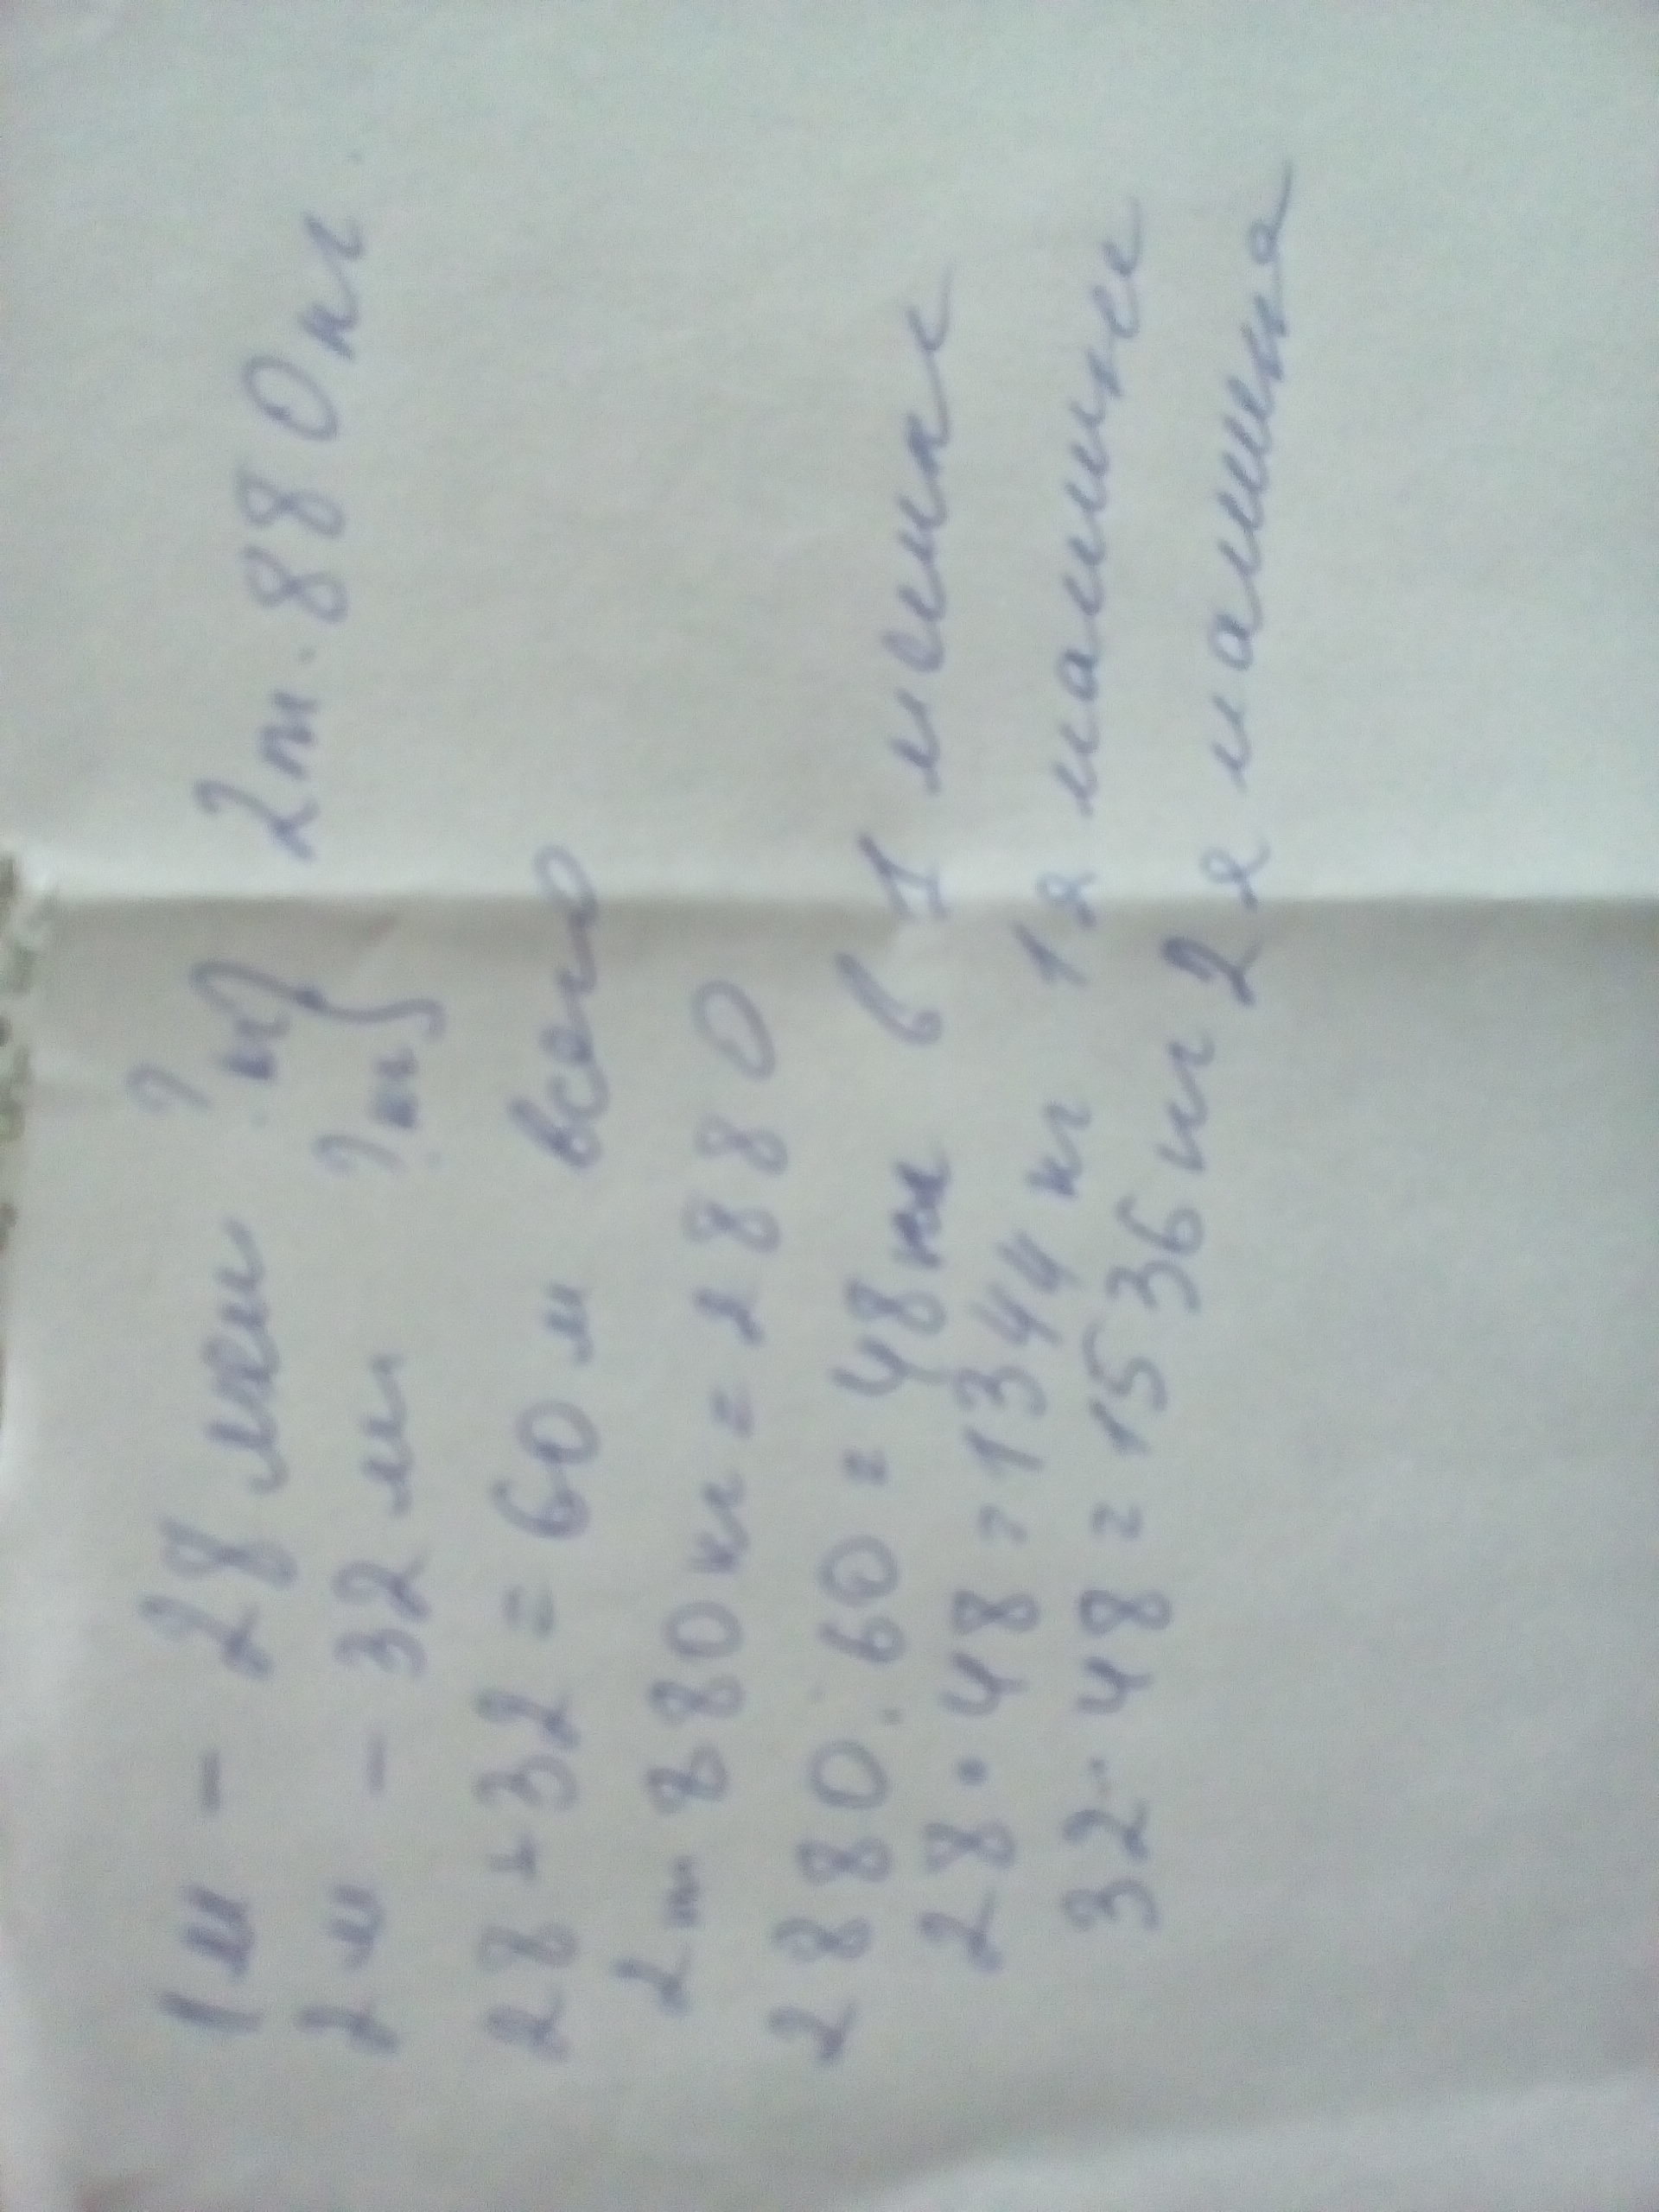 1м - 28 меш ? кг } 2т. 880кг
2м - 32 м ? кг
28+32=60 м всего
2т 880кг = 2880
2880:60=48кг в 1 мешке
28·48=1344кг 1я машине
32·48=1536кг 2я машина